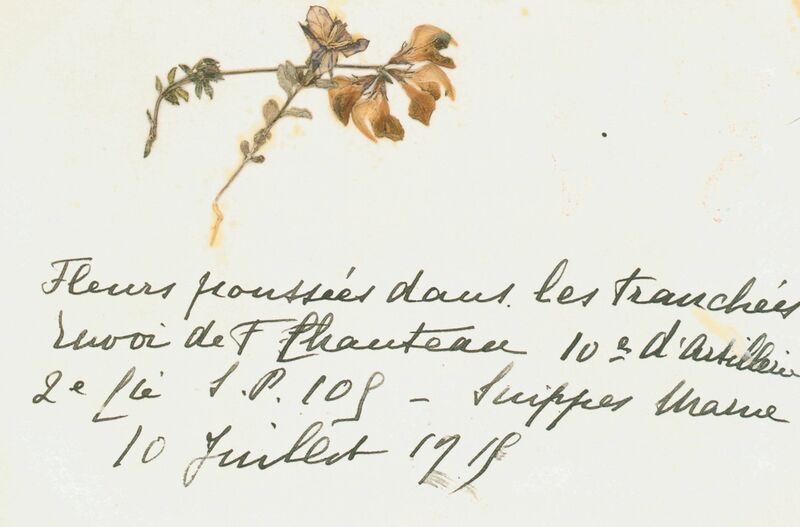 Fleurs poussées dans les tranchées
Envoi de F Chanteau 10e d'Artillerie
2e Cie S.P. 109 – Suippes Marne
10 Juillet 1915